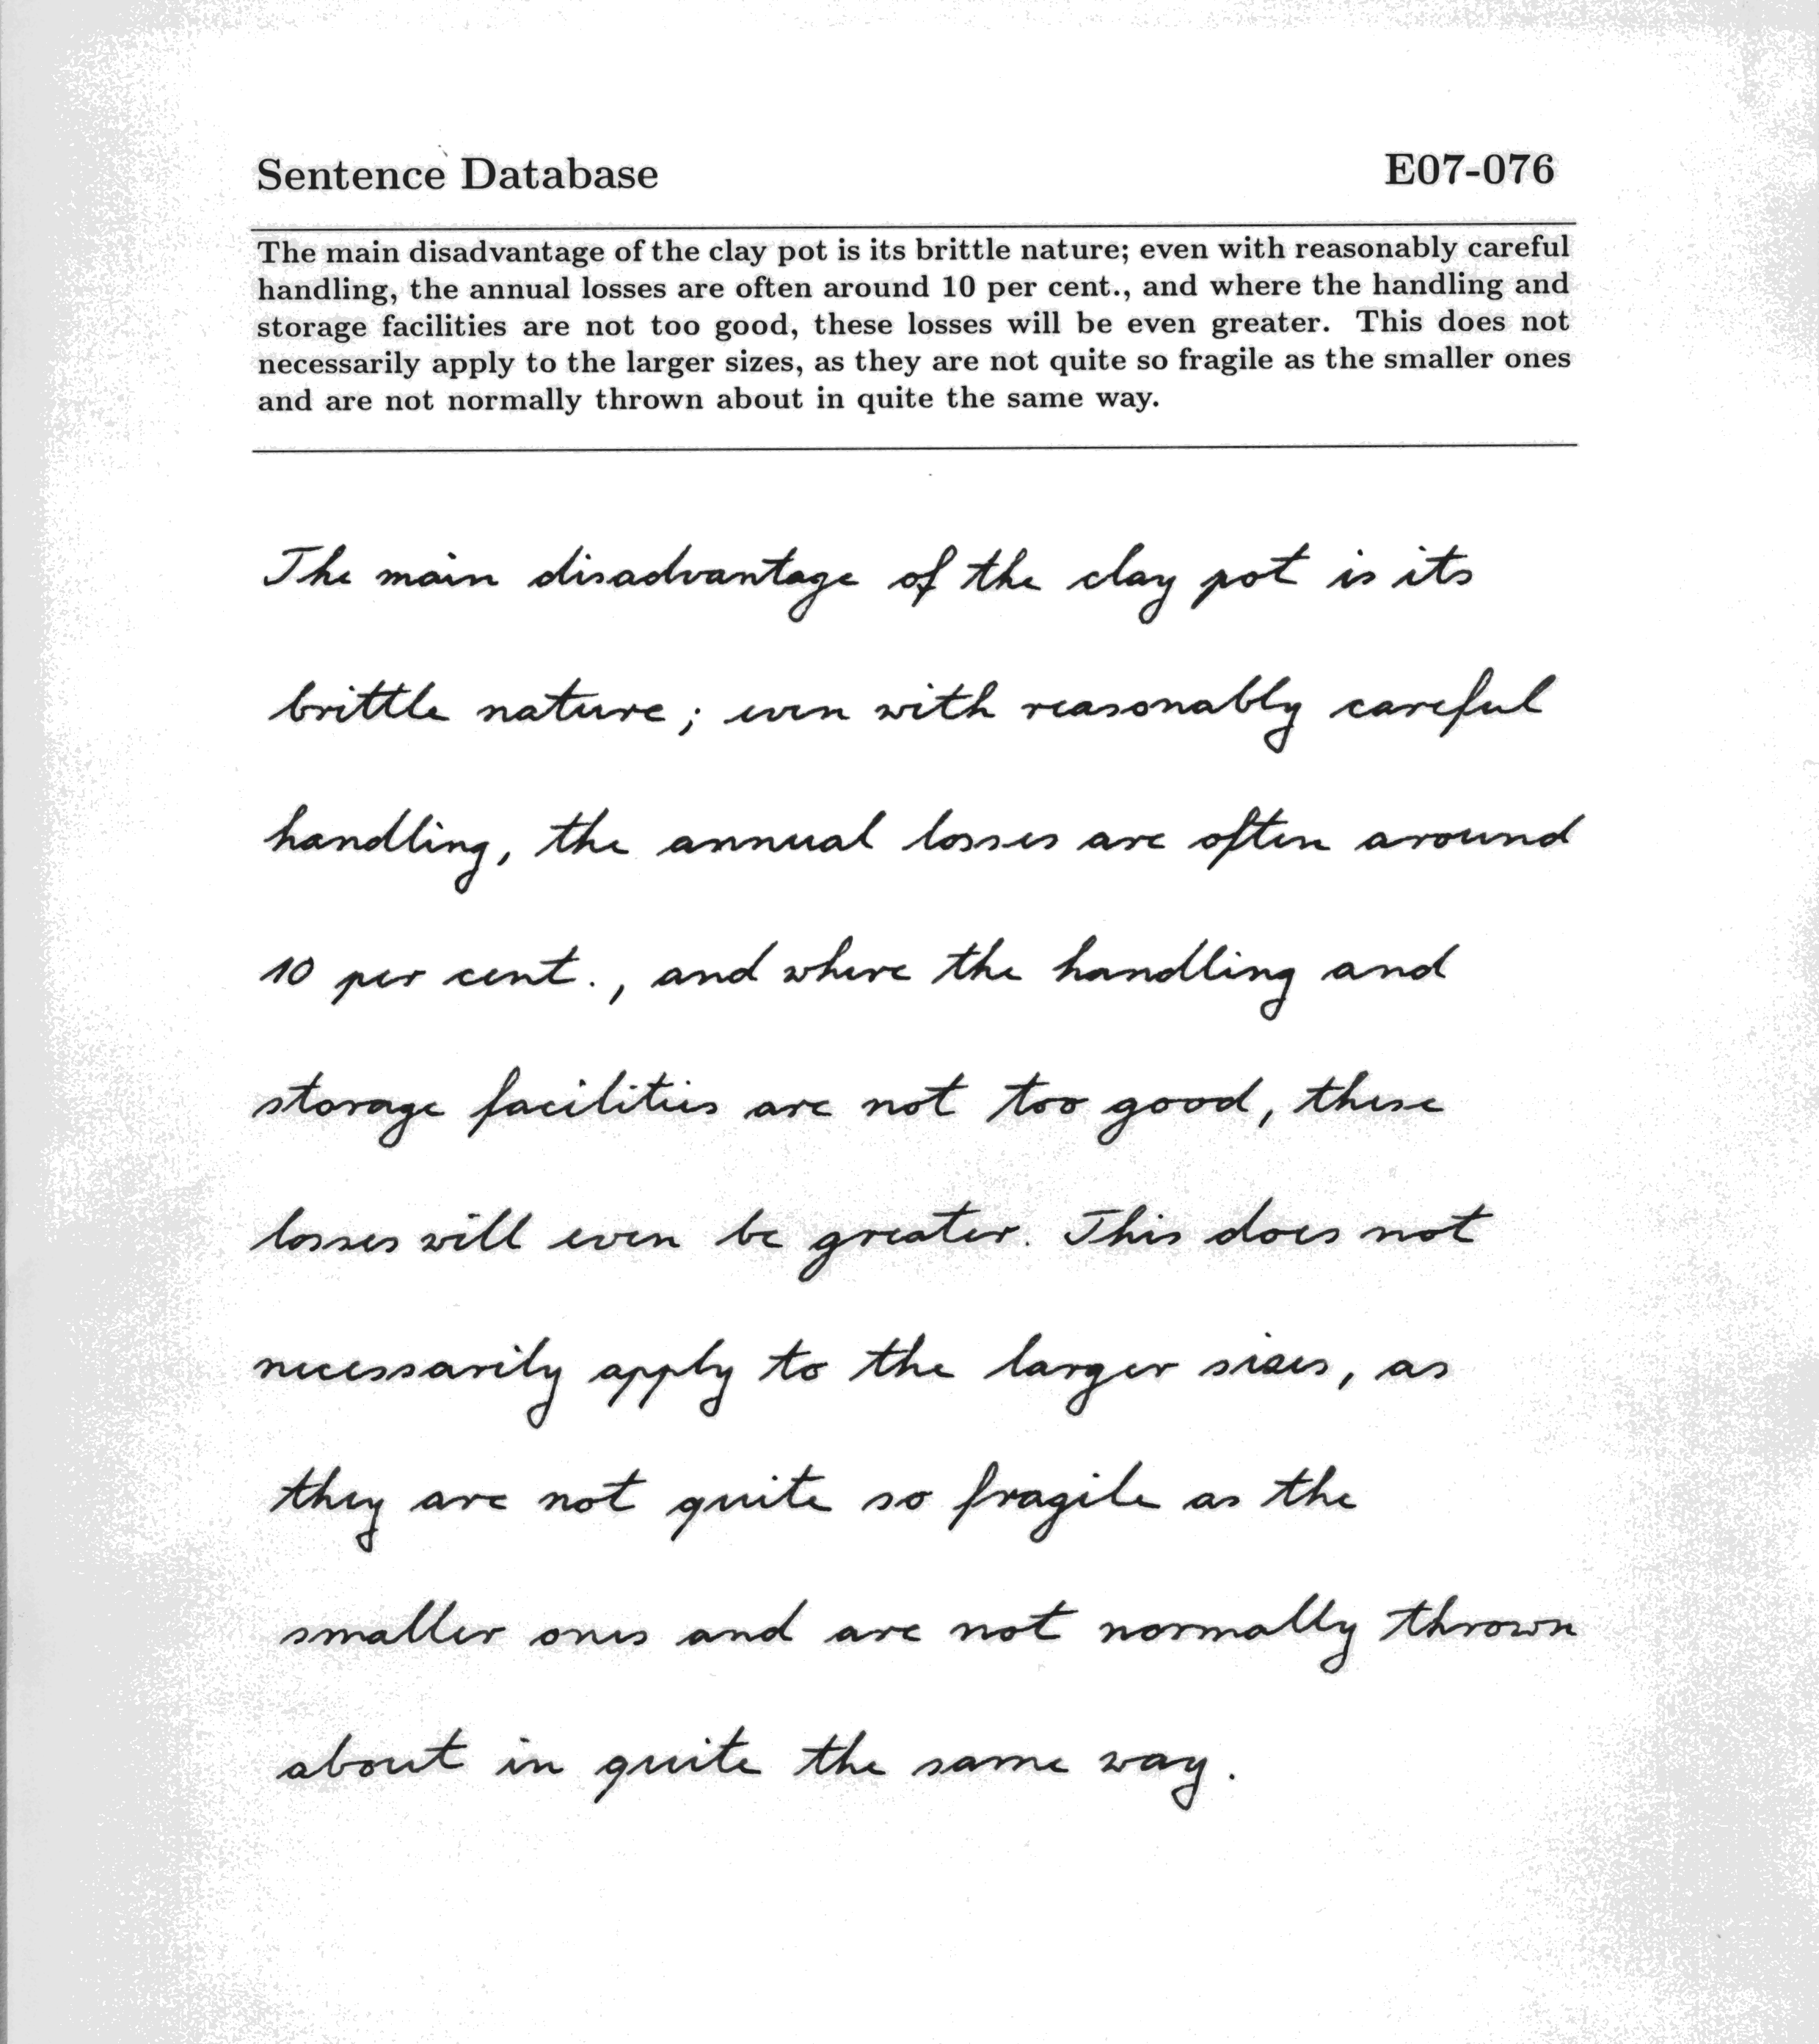 Sentence Database
E07-076
The main disadvantage of the clay pot is its brittle nature; even with reasonably careful
handling, the annual losses are often around 10 per cent., and where the handling and
storage facilities are not too good, these losses will be even greater. This does not
necessarily apply to the larger sizes, as they are not quite so fragile as the smaller ones
and are not normally thrown about in quite the same way.
The main disadvantage of the clay pot is its
brittle nature; even with reasonably careful
handling, the annual losses are often around
10 per cent., and where the handling and
storage facilities are not too good, these
losses will even be greater. This does not
necessarily apply to the larger sizes, as
they are not quite so fragile as the
smaller ones and are not normally thrown
about in quite the same way.